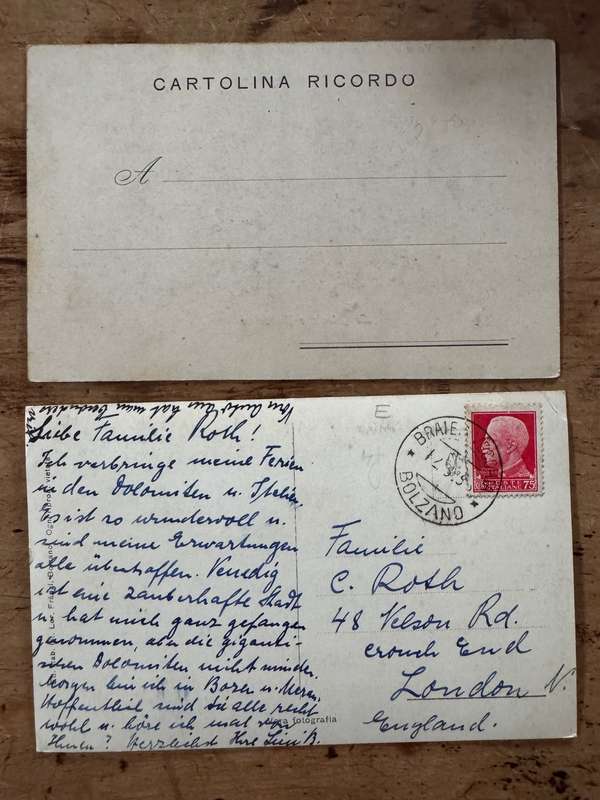 CARTOLINA RICORDO
A
Liebe Familie Roth!
Ich verbringe meine Ferien
in den Dolomiten u. Italien.
Es ist so wundervoll u.
sind meine Erwartungen
alle übertroffen. Venedig
ist eine zauberhafte Stadt
u. hat mich ganz gefangen
genommen, aber die giganti-
schen Dolomiten nicht minder.
Morgen bin ich in Bozen u. Meran.
Hoffentlich sind Sie alle recht
wohl u. höre ich mal von
Ihnen? Herzlichst Ihre
E
BRAIE
BOLZANO
75
Familie
C. Roth
48 Nelson Rd.
Crouch End
London N.
England.
Vera fotografia